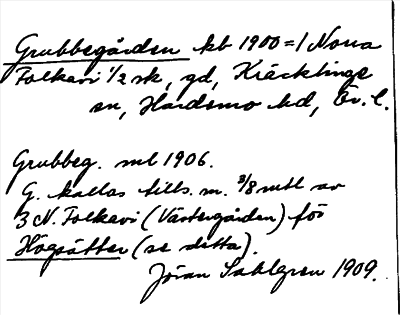 Grubbegården kb 1900=1 Norra
Folkavi 1/2 sk, gd, Kräcklinge
sn, Hardemo hd, Ör. l.
Grubbeg. ml 1906.
G. kallas tills. m. 3/8 mtl av
3 N. Folkavi (Västergården) för
Högsätter (se detta).
Jöran Sahlgren 1909.